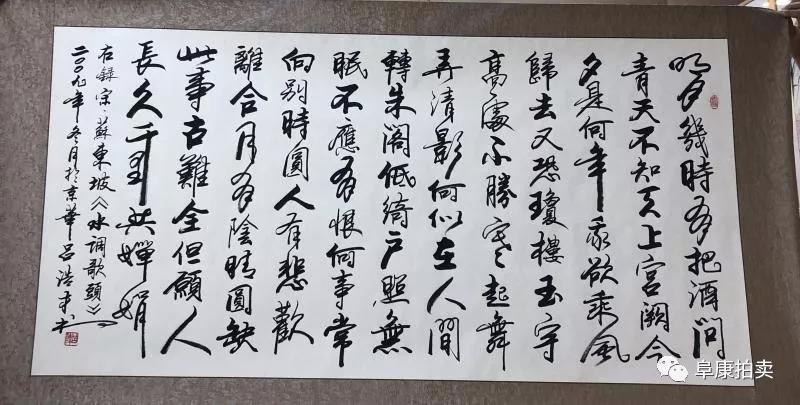 明月幾時有把酒問
青天不知天上宮闕今
夕是何年我欲乘風
歸去又恐瓊樓玉宇
高處不勝寒起舞
弄清影何似在人間
轉朱閣低綺户照無
眠不應有恨何事常
向别時圓人有悲歡
離合月有陰晴圓缺
此事古難全但願人
長久千里共嬋娟
右録宋·蘇東坡《水調歌頭》
二〇〇九年冬月於京華吕浩书
阜康拍卖